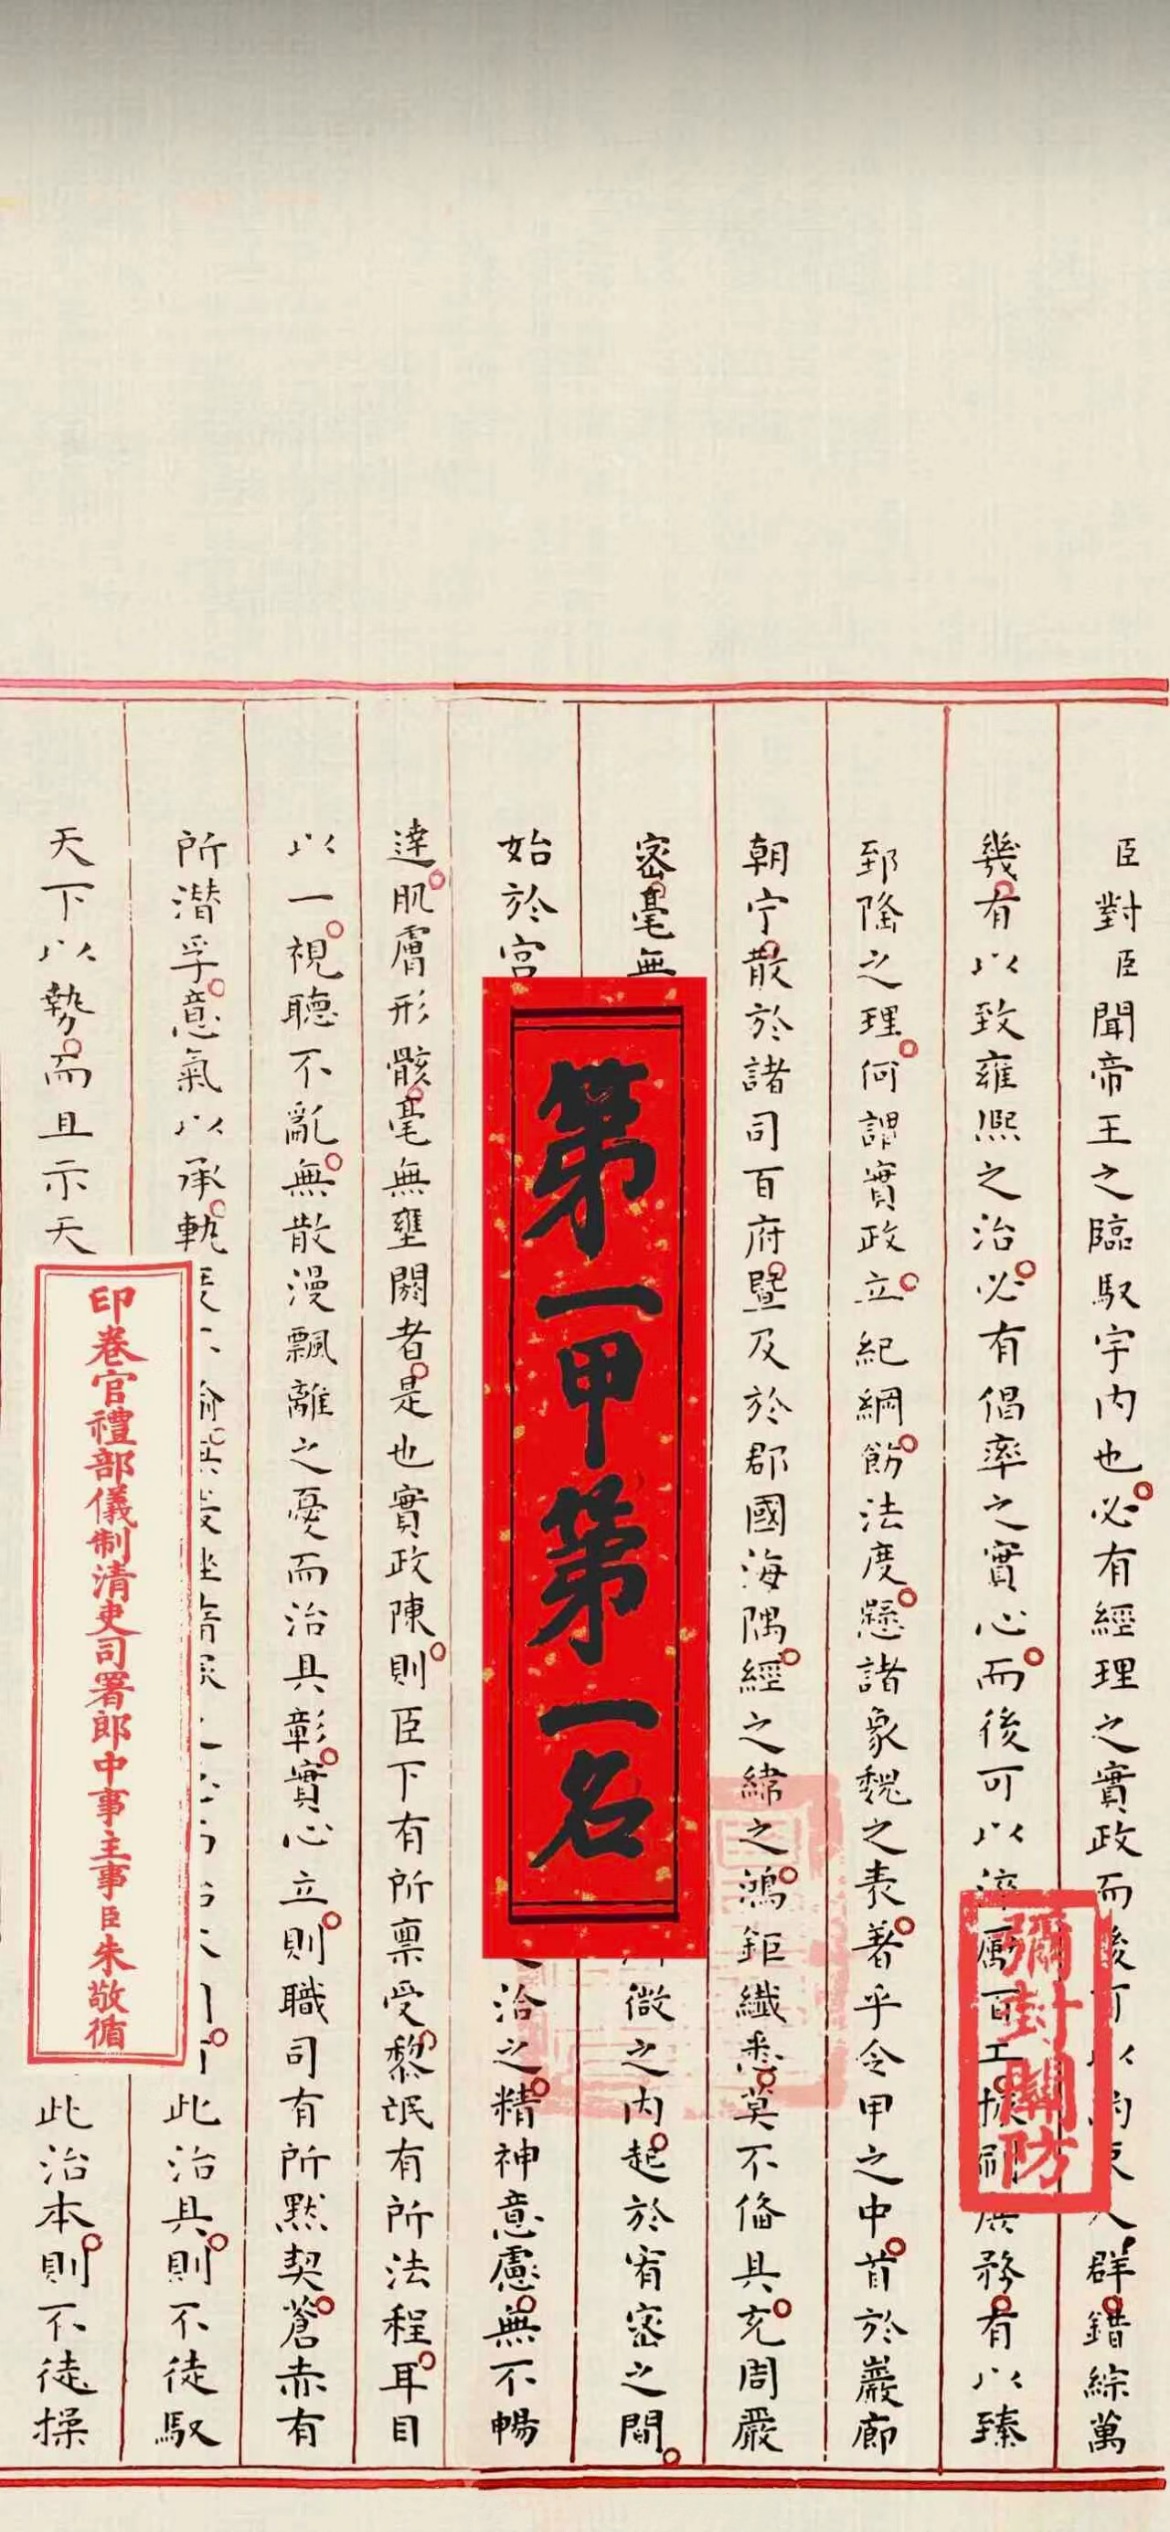 臣對臣聞帝王之臨馭宇内也必有經理之實政而後可以約束人群錯綜萬
幾有以致雍熙之治必有倡率之實心而後可以淬厲百工振刷庶務有以臻
郅隆之理何謂實政立紀綱飭法度懸諸象魏之表著乎令甲之中首於巖廊
朝宁散於諸司百府暨及於郡國海隅經之緯之鴻鉅纖悉莫不備具充周嚴
密毫無
微之内起於宥密之間
始於宫
洽之精神意慮無不暢
達肌膚形骸毫無壅閼者是也實政陳則臣下有所禀受黎氓有所法程耳目
以一視聽不亂無散漫飄離之憂而治具彰實心立則職司有所默契蒼赤有
所潛孚意氣以承軌
此治具則不徒馭
天下以勢而且示天
此治本則不徒操
第一甲第一名
彌封關防
印卷官禮部儀制清吏司署郎中事主事臣朱敬循